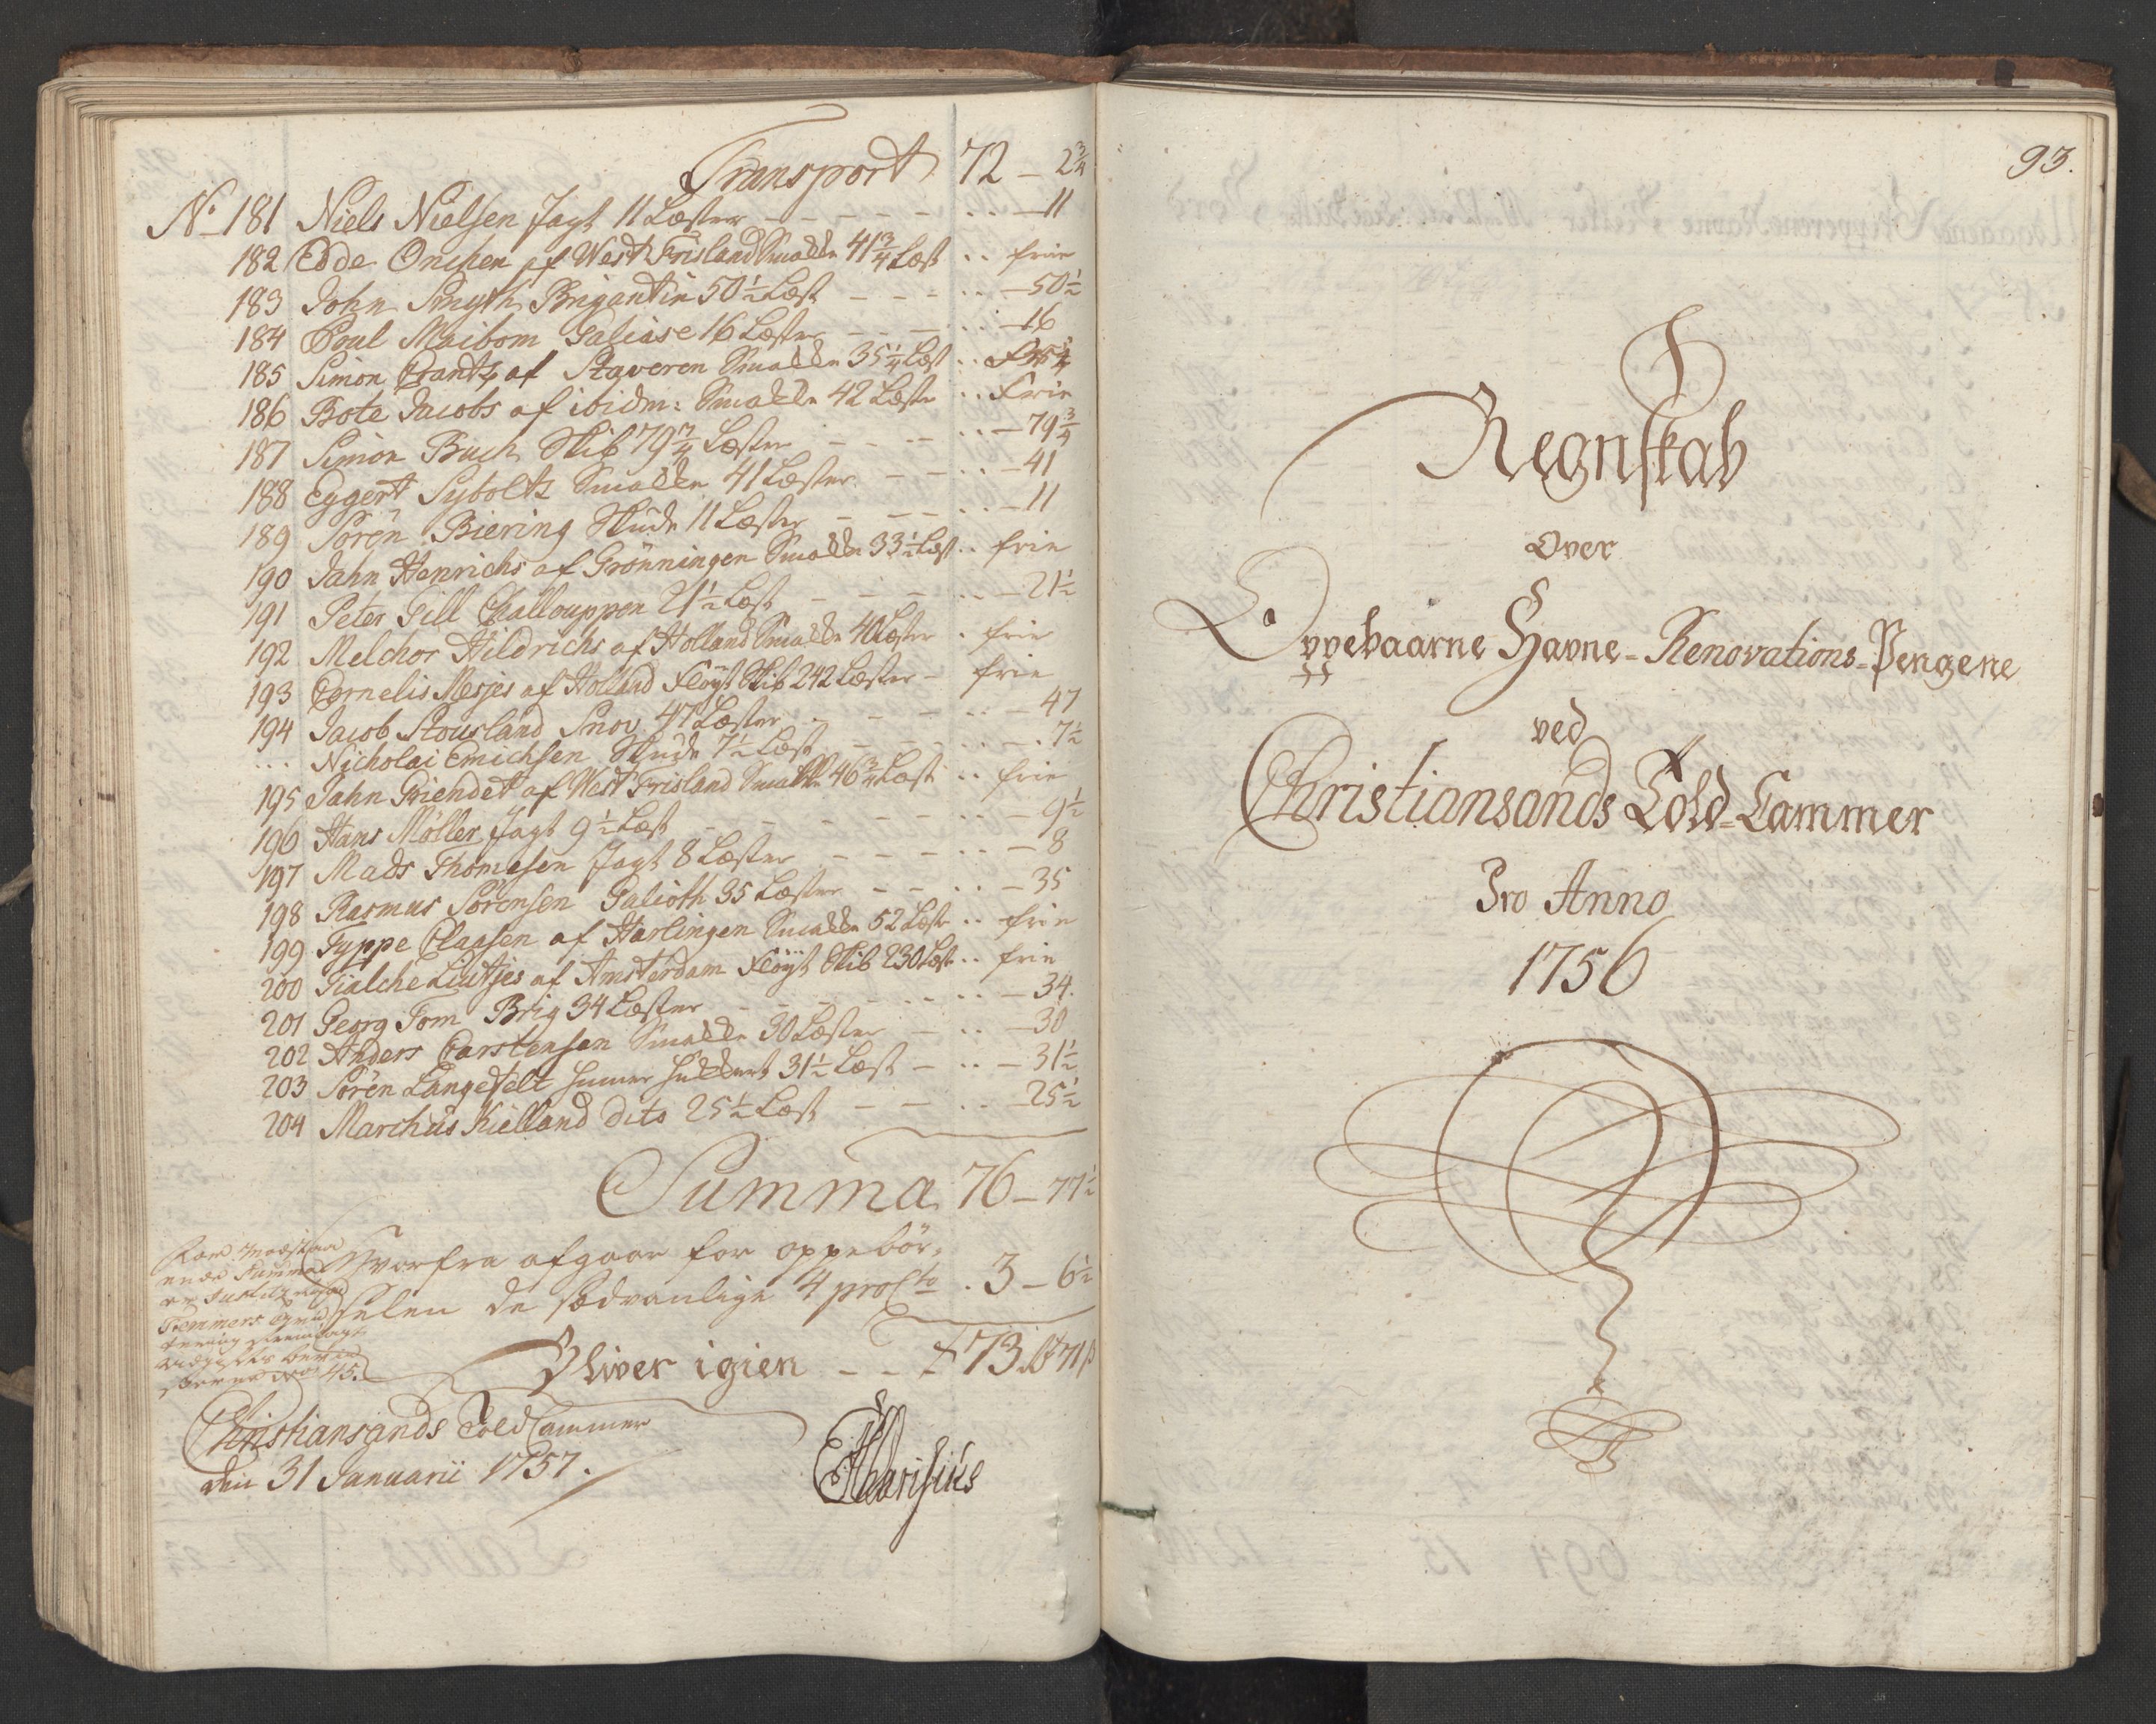 Transport 72 - 2 3/4
No 181 Niels Nielsen Jagt 11 Læster - - - - - .. - 11
182 Edde Onchen af West Frisland Smakke 41 3/4 Læst .. frie
183 John Smyth Brigantin 50 1/2 Læst - - - .. - 50 1/2
184 Poul Maibom Galiase 16 Læster - - - .. - 16
185 Simon Crantz af Staveren Smakke 35 1/4 Læst ..
186 Bote Jacobs af ibidm: Smakke 42 Læste .. Frie
187 Simon Buch Skib 79 3/4 Læster - - - .. - 79 3/4
188 Eggert Syboltz Smakke 41 Læster - - .. - 41
189 Sören Biering Skude 11 Læster - - - .. - 11
190 Jahn Henrichs af Grönningen Smakke 33 1/2 Læst .. frie
191 Peter Gill Challouppen 21 1/2 Læst - - - .. - 21 1/2
192 Melchor Hildrichs af Holland Smakke 40 Læster . frie
193 Cornelis Mesjes af Holland Fløyt Skib 242 Læster - frie
194 Jacob Stousland Snov 47 Læster - - - .. - 47
... Nicholai Emichsen Skude 7 1/2 Læst - - - .. - 7 1/2
195 Jahn Griendet af West Frisland Smakke 46 3/4 Læst .. frie
196 Hans Møller Jagt 9 1/2 Læst - - - - .. - 9 1/2
197 Mads Thomesen Jagt 8 Læster - - - - .. - 8
198 Rasmus Sörensen Galioth 35 Læster - - .. - 35
199 Typpe Claasen af Harlingen Smakke 52 Læste .. frie
200 Tialche Liutjes af Amsterdam Fløyt Skib 230 Læst .. frie
201 Georg Tom Brig 34 Læster - - - - .. - 34.
202 Anders Carstensen Smakke 30 Læster - .. - 30
203 Sören Langefelt Hummer Hukkert 31 1/2 Læst - .. - 31 1/2
204 Marchus Kielland dito 25 1/2 Læst - - .. - 25 1/2
Summa 76 - 77 1/2
Hvorfra afgaar for oppebör-
selen de sædvanlige 4 proCto . 3 - 6 1/2
Bliver igien - - 73 71
No 45.
Christiansands Told Cammer
den 31 Januarii 1757.
93.
Regnskab
Over
Oppebaarne Havne-Renovations-Pengene
ved
Christiansands Told-Cammer
Pro Anno
1756